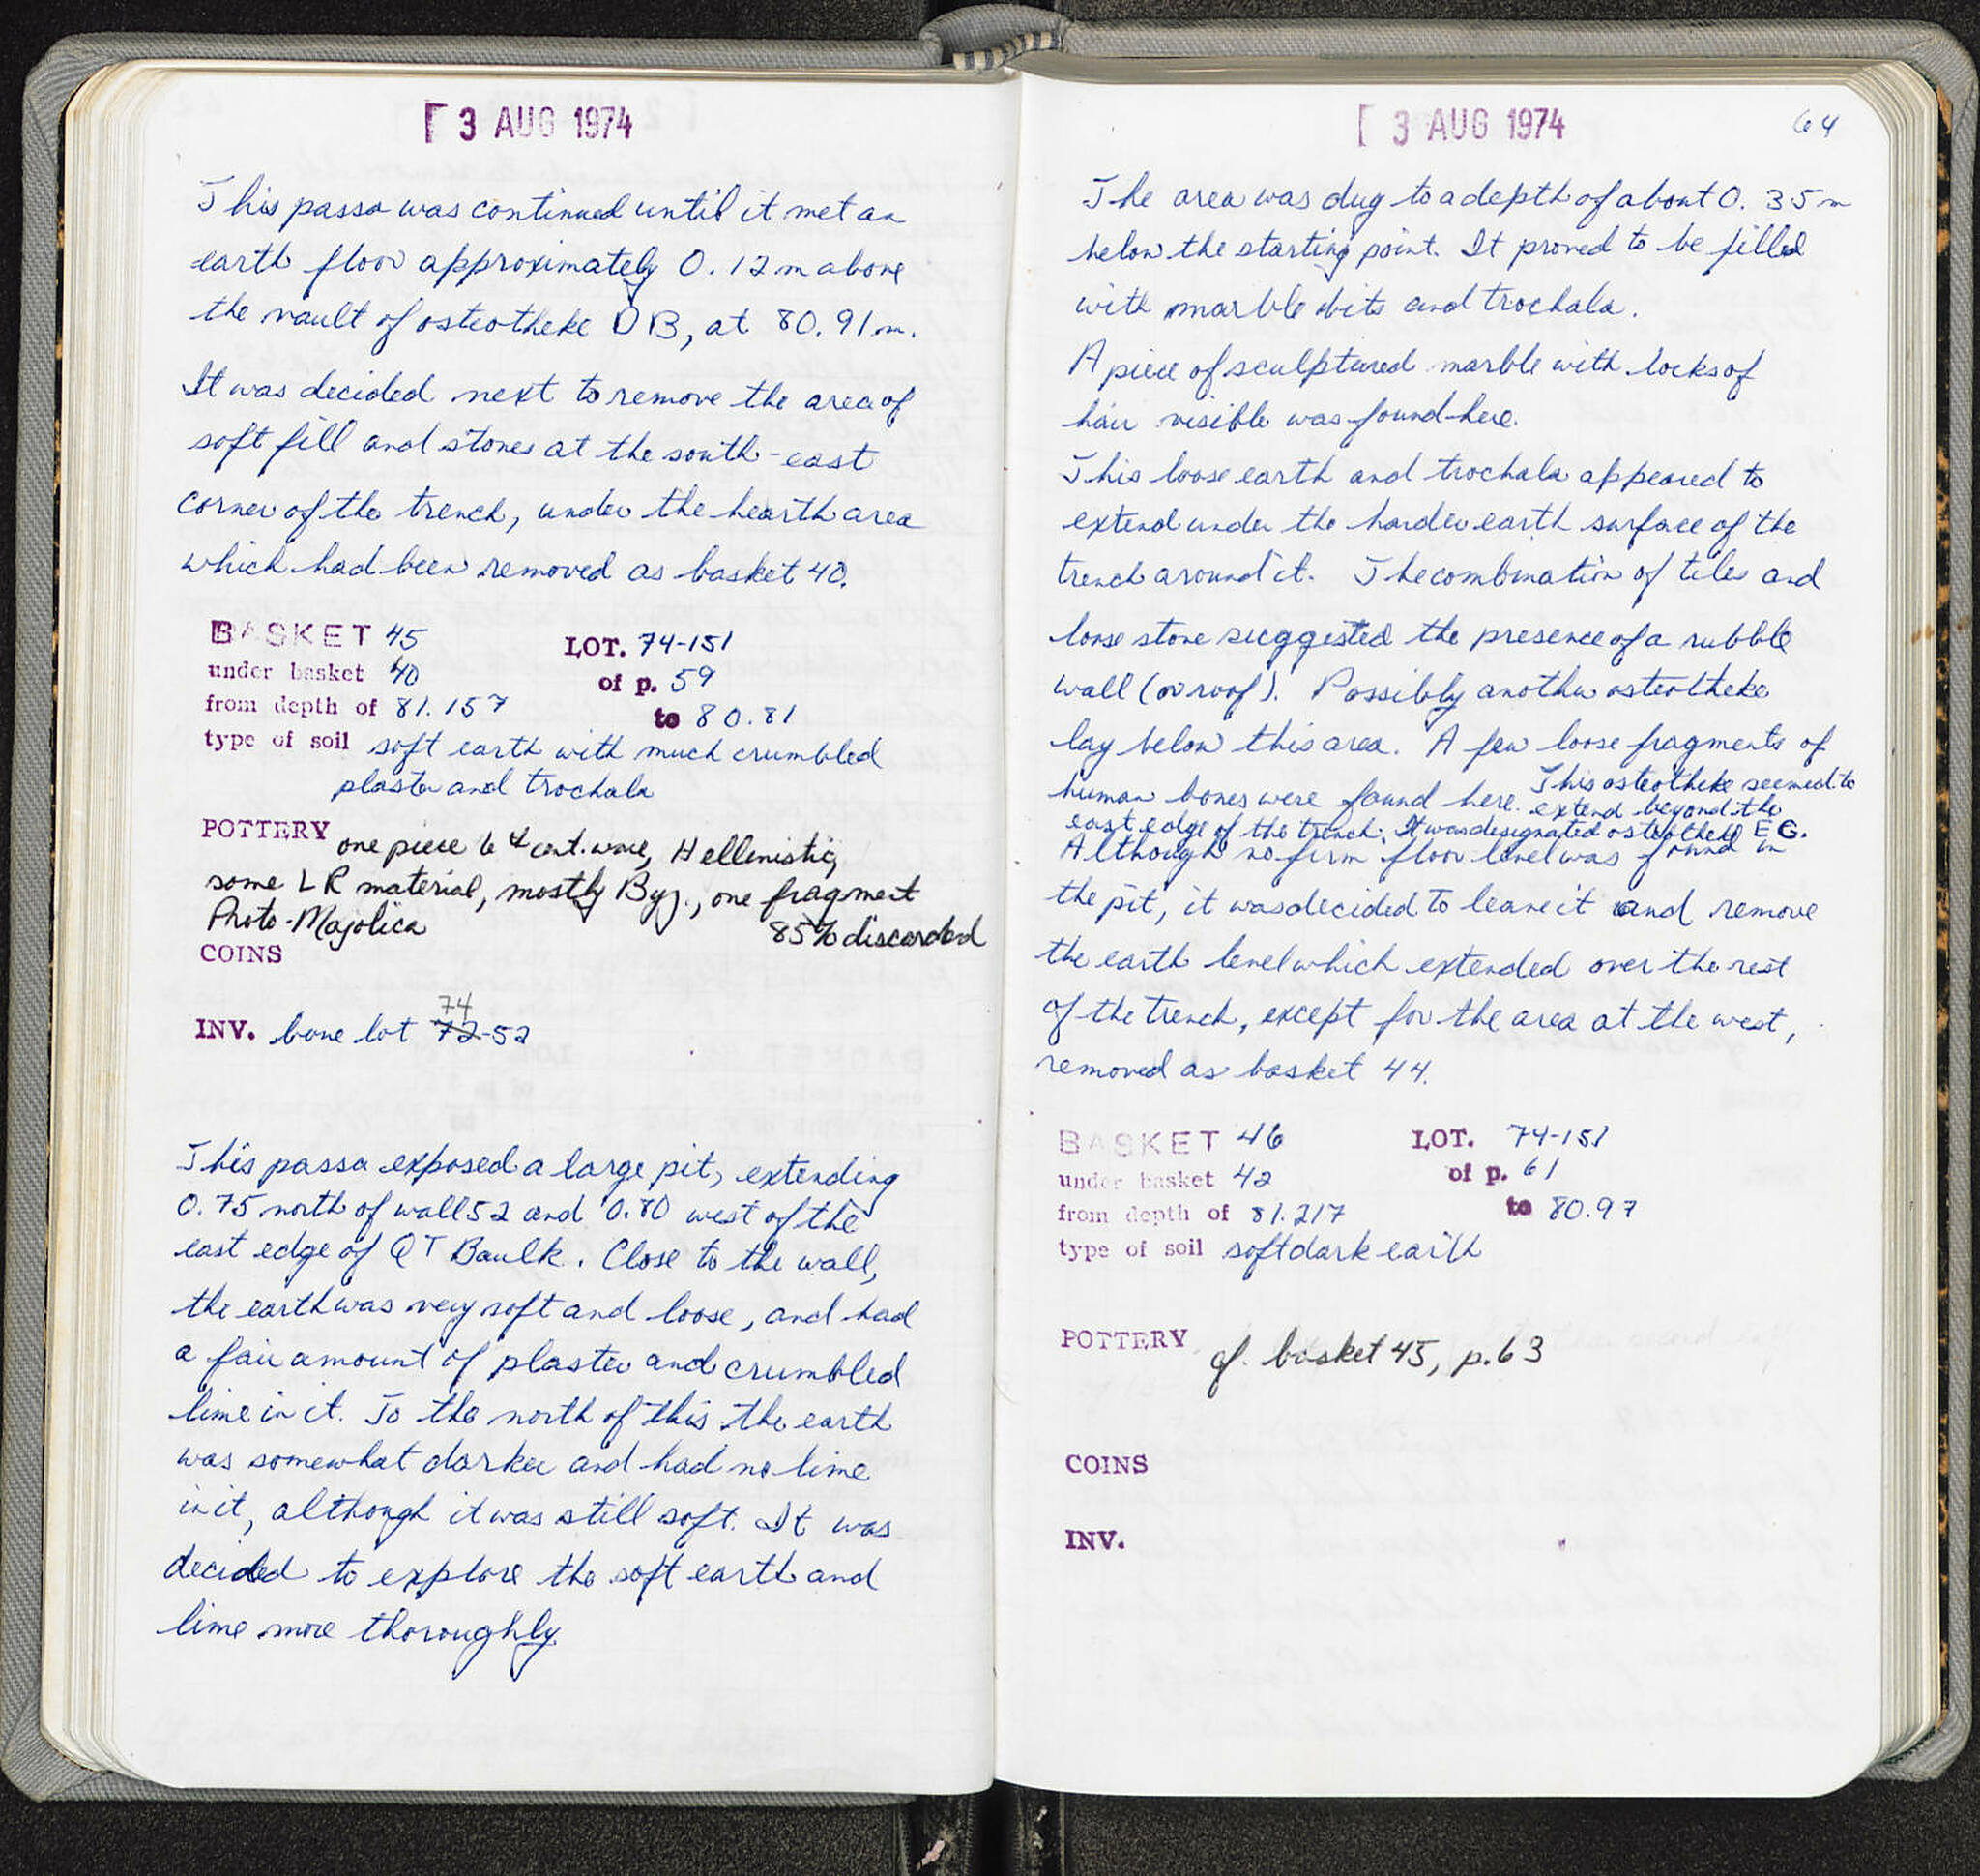 [ 3 AUG 1974
This passa was continued until it met an
earth floor approximately 0.12 m above
the vault of osteotheke DB, at 80.91 m.
It was decided next to remove the area of
soft fill and stones at the south-east
corner of the trench, under the hearth area
which had been removed as basket 40.
BASKET 45 LOT. 74-151
under basket 40 of p. 59
from depth of 81.157 to 80.81
type of soil soft earth with much crumbled
plaster and trochala
POTTERY one piece 6 cent. ware, Hellenistic,
some LR material, mostly Byz., one fragment
Proto-Majolica 85% discarded
COINS
74
INV. bone lot 72-52
This passa exposed a large pit, extending
0.75 north of wall 52 and 0.80 west of the
east edge of QT Baulk. Close to the wall,
the earth was very soft and loose, and had
a fair amount of plaster and crumbled
lime in it. To the north of this the earth
was somewhat darker and had no lime
in it, although it was still soft. It was
decided to explore the soft earth and
lime more thoroughly
[ 3 AUG 1974 64
The area was dug to a depth of about 0.35 m
below the starting point. It proved to be filled
with marble bits and trochala.
A piece of sculptured marble with locks of
hair visible was found here.
This loose earth and trochala appeared to
extend under the harder earth surface of the
trench around it. The combination of tiles and
loose stone suggested the presence of a rubble
wall (or roof). Possibly another osteotheke
lay below this area. A few loose fragments of
human bones were found here. This osteotheke seemed to
extend beyond the
east edge of the trench. It was designated osteotheke EG.
Although no firm floor level was found in
the pit, it was decided to leave it and remove
the earth level which extended over the rest
of the trench, except for the area at the west,
removed as basket 44.
BASKET 46 LOT. 74-151
under basket 42 of p. 61
from depth of 81.217 to 80.97
type of soil soft dark earth
POTTERY cf. basket 45, p. 63
COINS
INV.